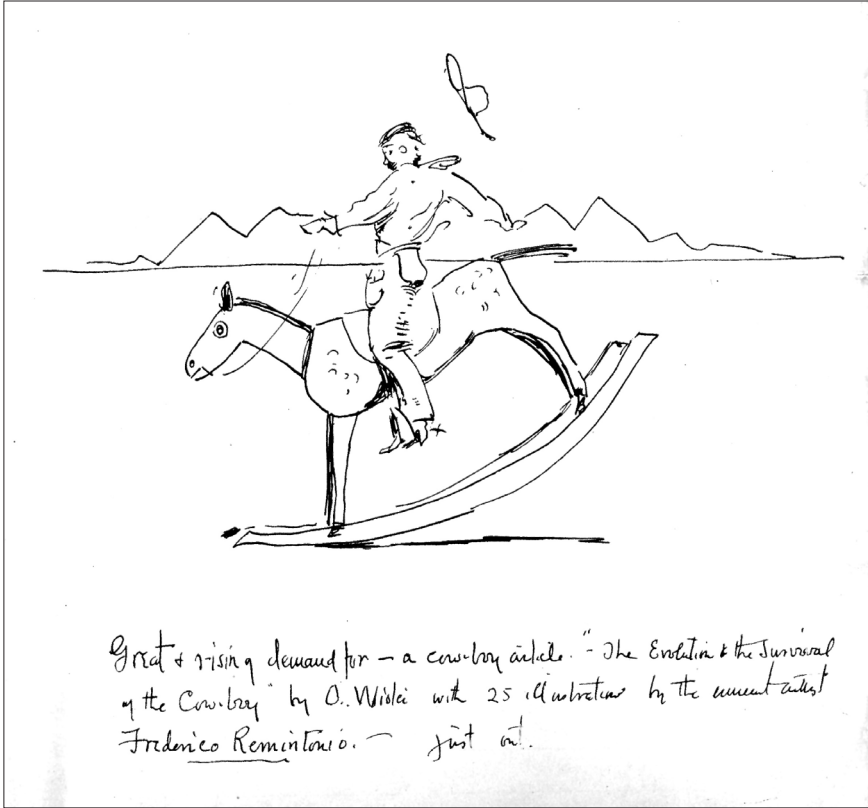 Great & rising demand for — a cow-boy article. "- The Evolution & the Survival
of the Cow-boy" by O. Wister with 25 illustrations by the eminent artist
Frederico Remintonio. — just out.